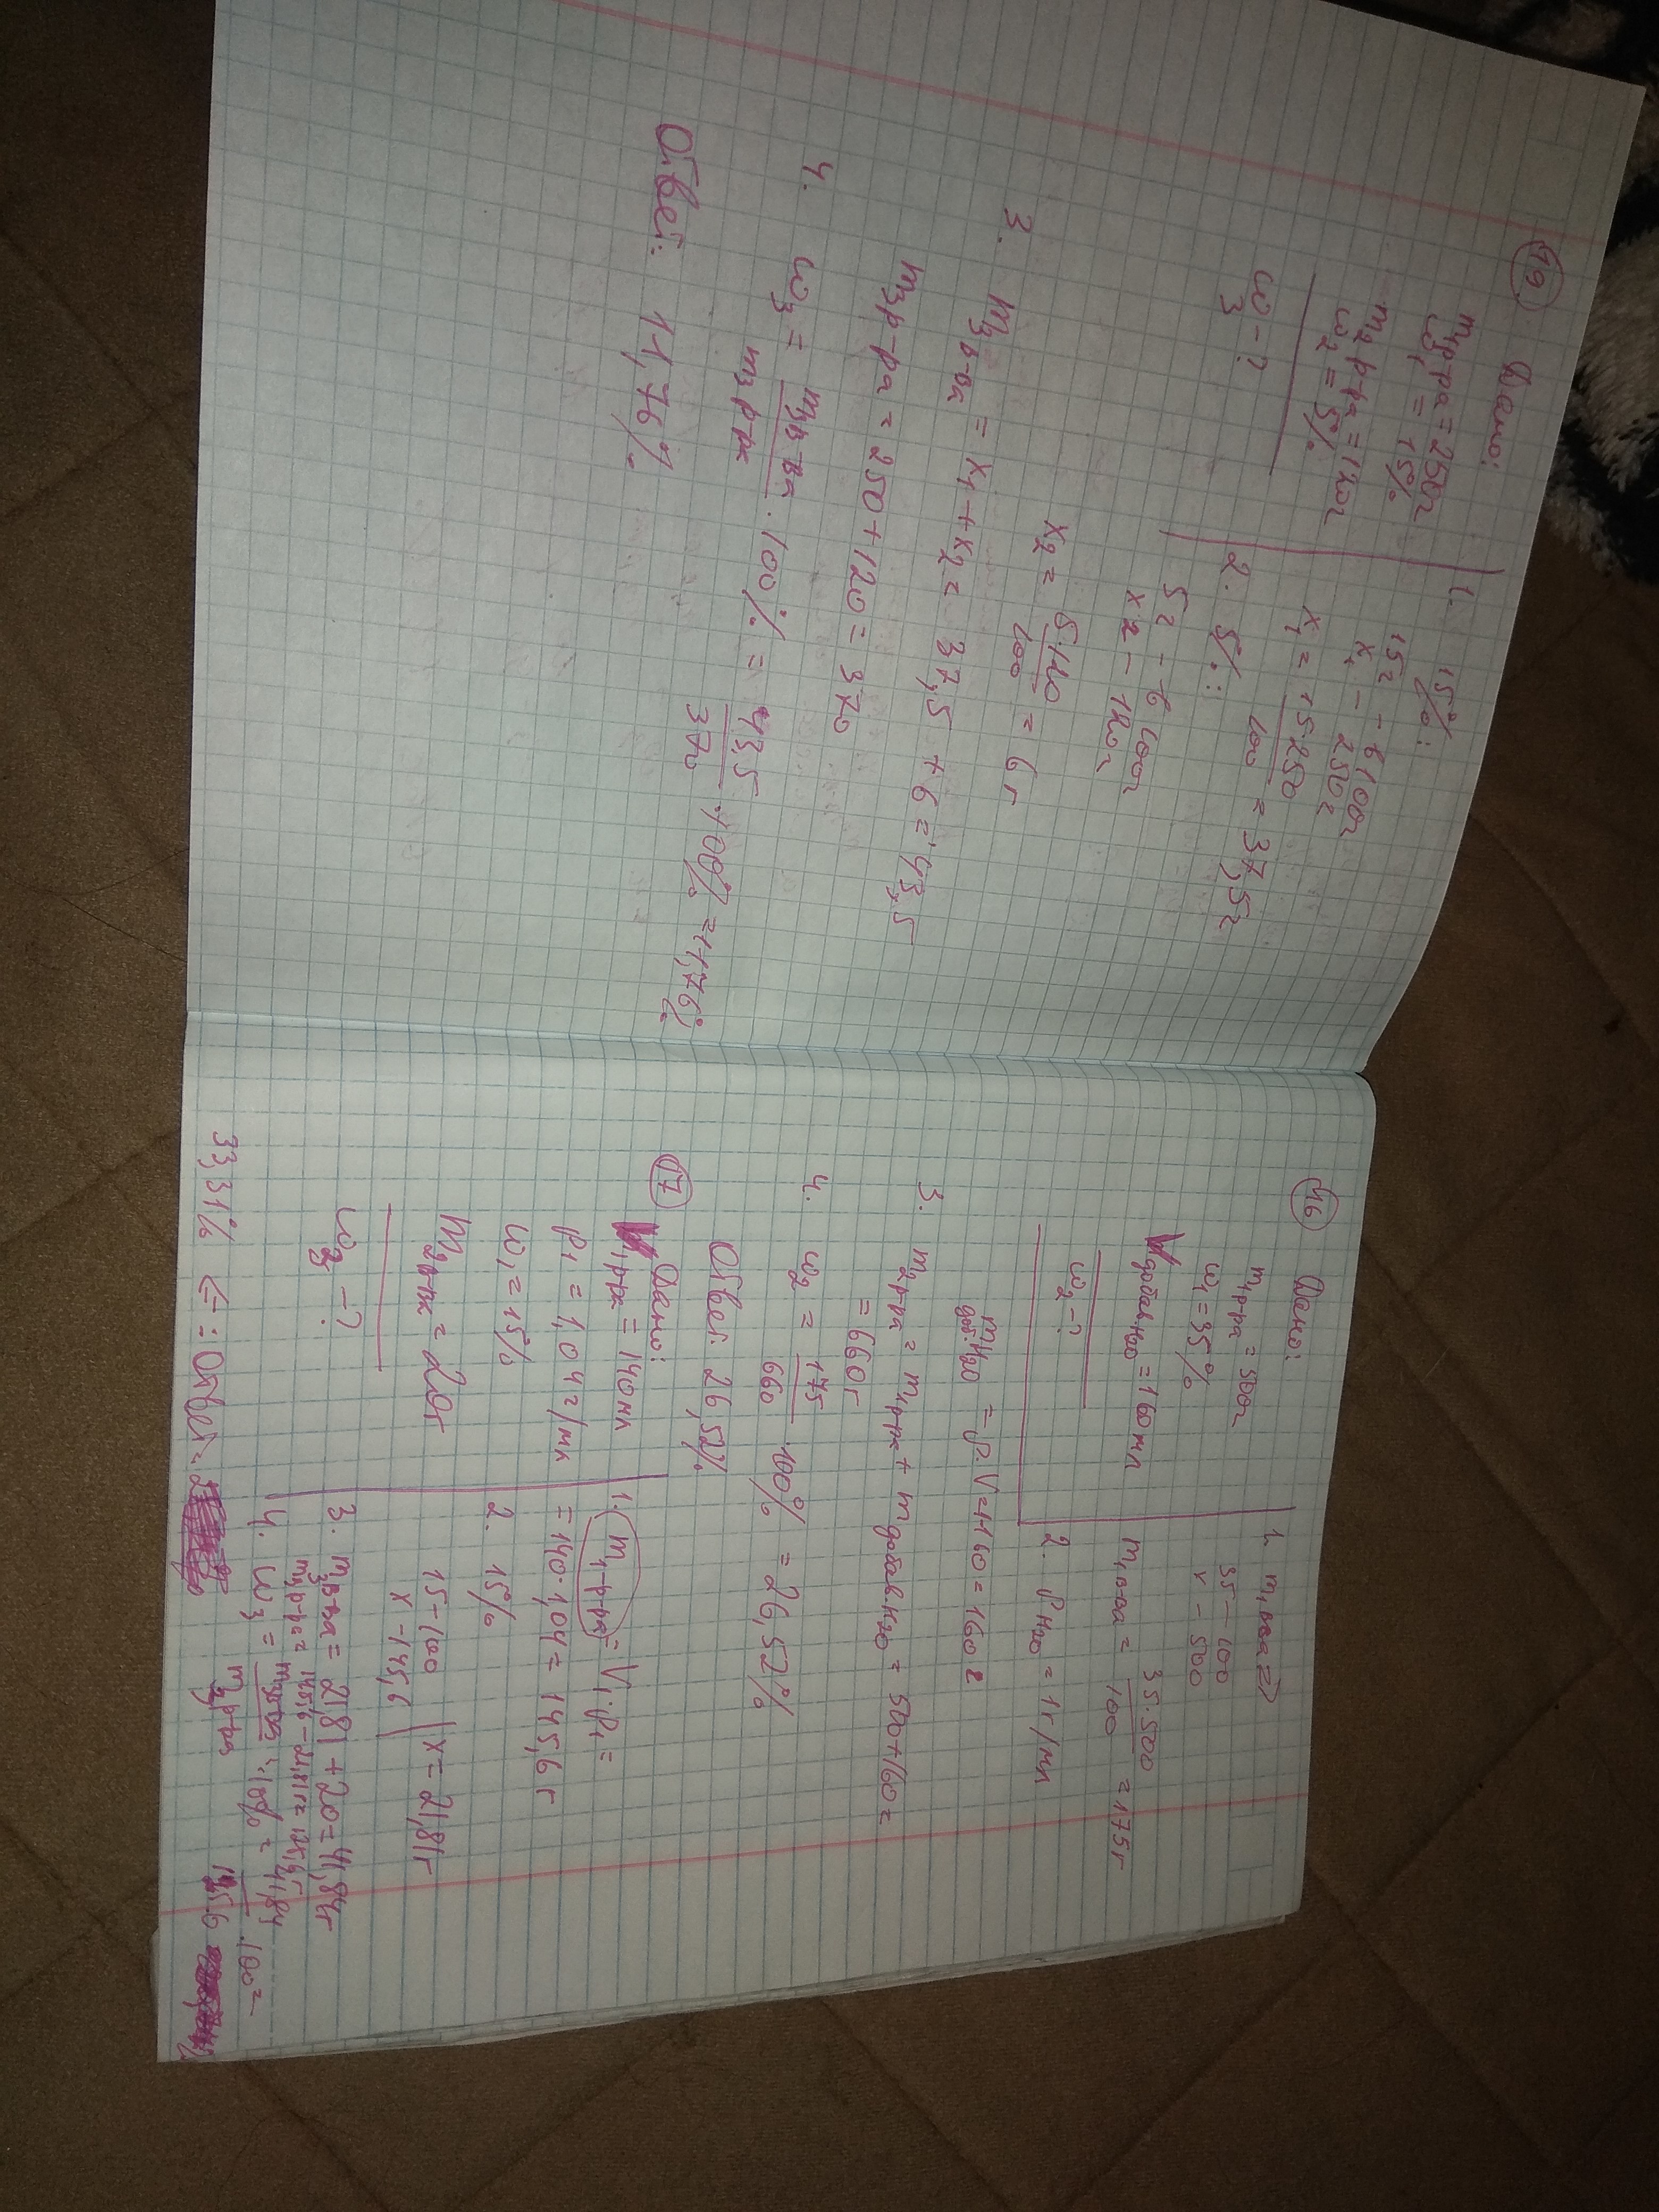 19
Дано:
m₁р-ра = 250г
ω₁ = 15%
m₂р-ра = 120г
ω₂ = 5%
ω₃ - ?
1. 15%:
15г - в 100г
x₁ - 250г
x₁ = 15·250 / 100 = 37,5г
2. 5%:
5г - в 100г
x₂ - 120г
x₂ = 5·120 / 100 = 6г
3. m₃в-ва = x₁ + x₂ = 37,5 + 6 = 43,5
m₃р-ра = 250 + 120 = 370
4. ω₃ = m₃в-ва / m₃р-ра · 100% = 43,5 / 370 · 100% = 11,76%
Ответ: 11,76%
16
Дано:
m₁р-ра = 500г
ω₁ = 35%
V добавл.H₂O = 160мл
ω₂ - ?
1. m₁в-ва =>
35 - 100
x - 500
m₁в-ва = 35·500 / 100 = 175г
2. ρH₂O = 1г/мл
mH₂O доб. = ρ·V = 1·160 = 160г
3. m₂р-ра = m₁р-ра + m добавл.H₂O = 500+160 =
= 660г
4. ω₂ = 175 / 660 · 100% = 26,52%
Ответ: 26,52%
17
Дано:
V₁р-ра = 140мл
ρ₁ = 1,04г/мл
ω₁ = 15%
m₂в-ва = 20г
ω₃ - ?
1. m₁р-ра = V₁·ρ₁ =
= 140·1,04 = 145,6г
2. 15%
15 - 100
x - 145,6
x = 21,81г
3. m₃в-ва = 21,81 + 20 = 41,84г
m₃р-ра = 145,6 - 21,81г = 125,6г
4. ω₃ = m₃в-ва / m₃р-ра · 100% = 41,84 / 125,6 · 100 =
33,31% <= : Ответ